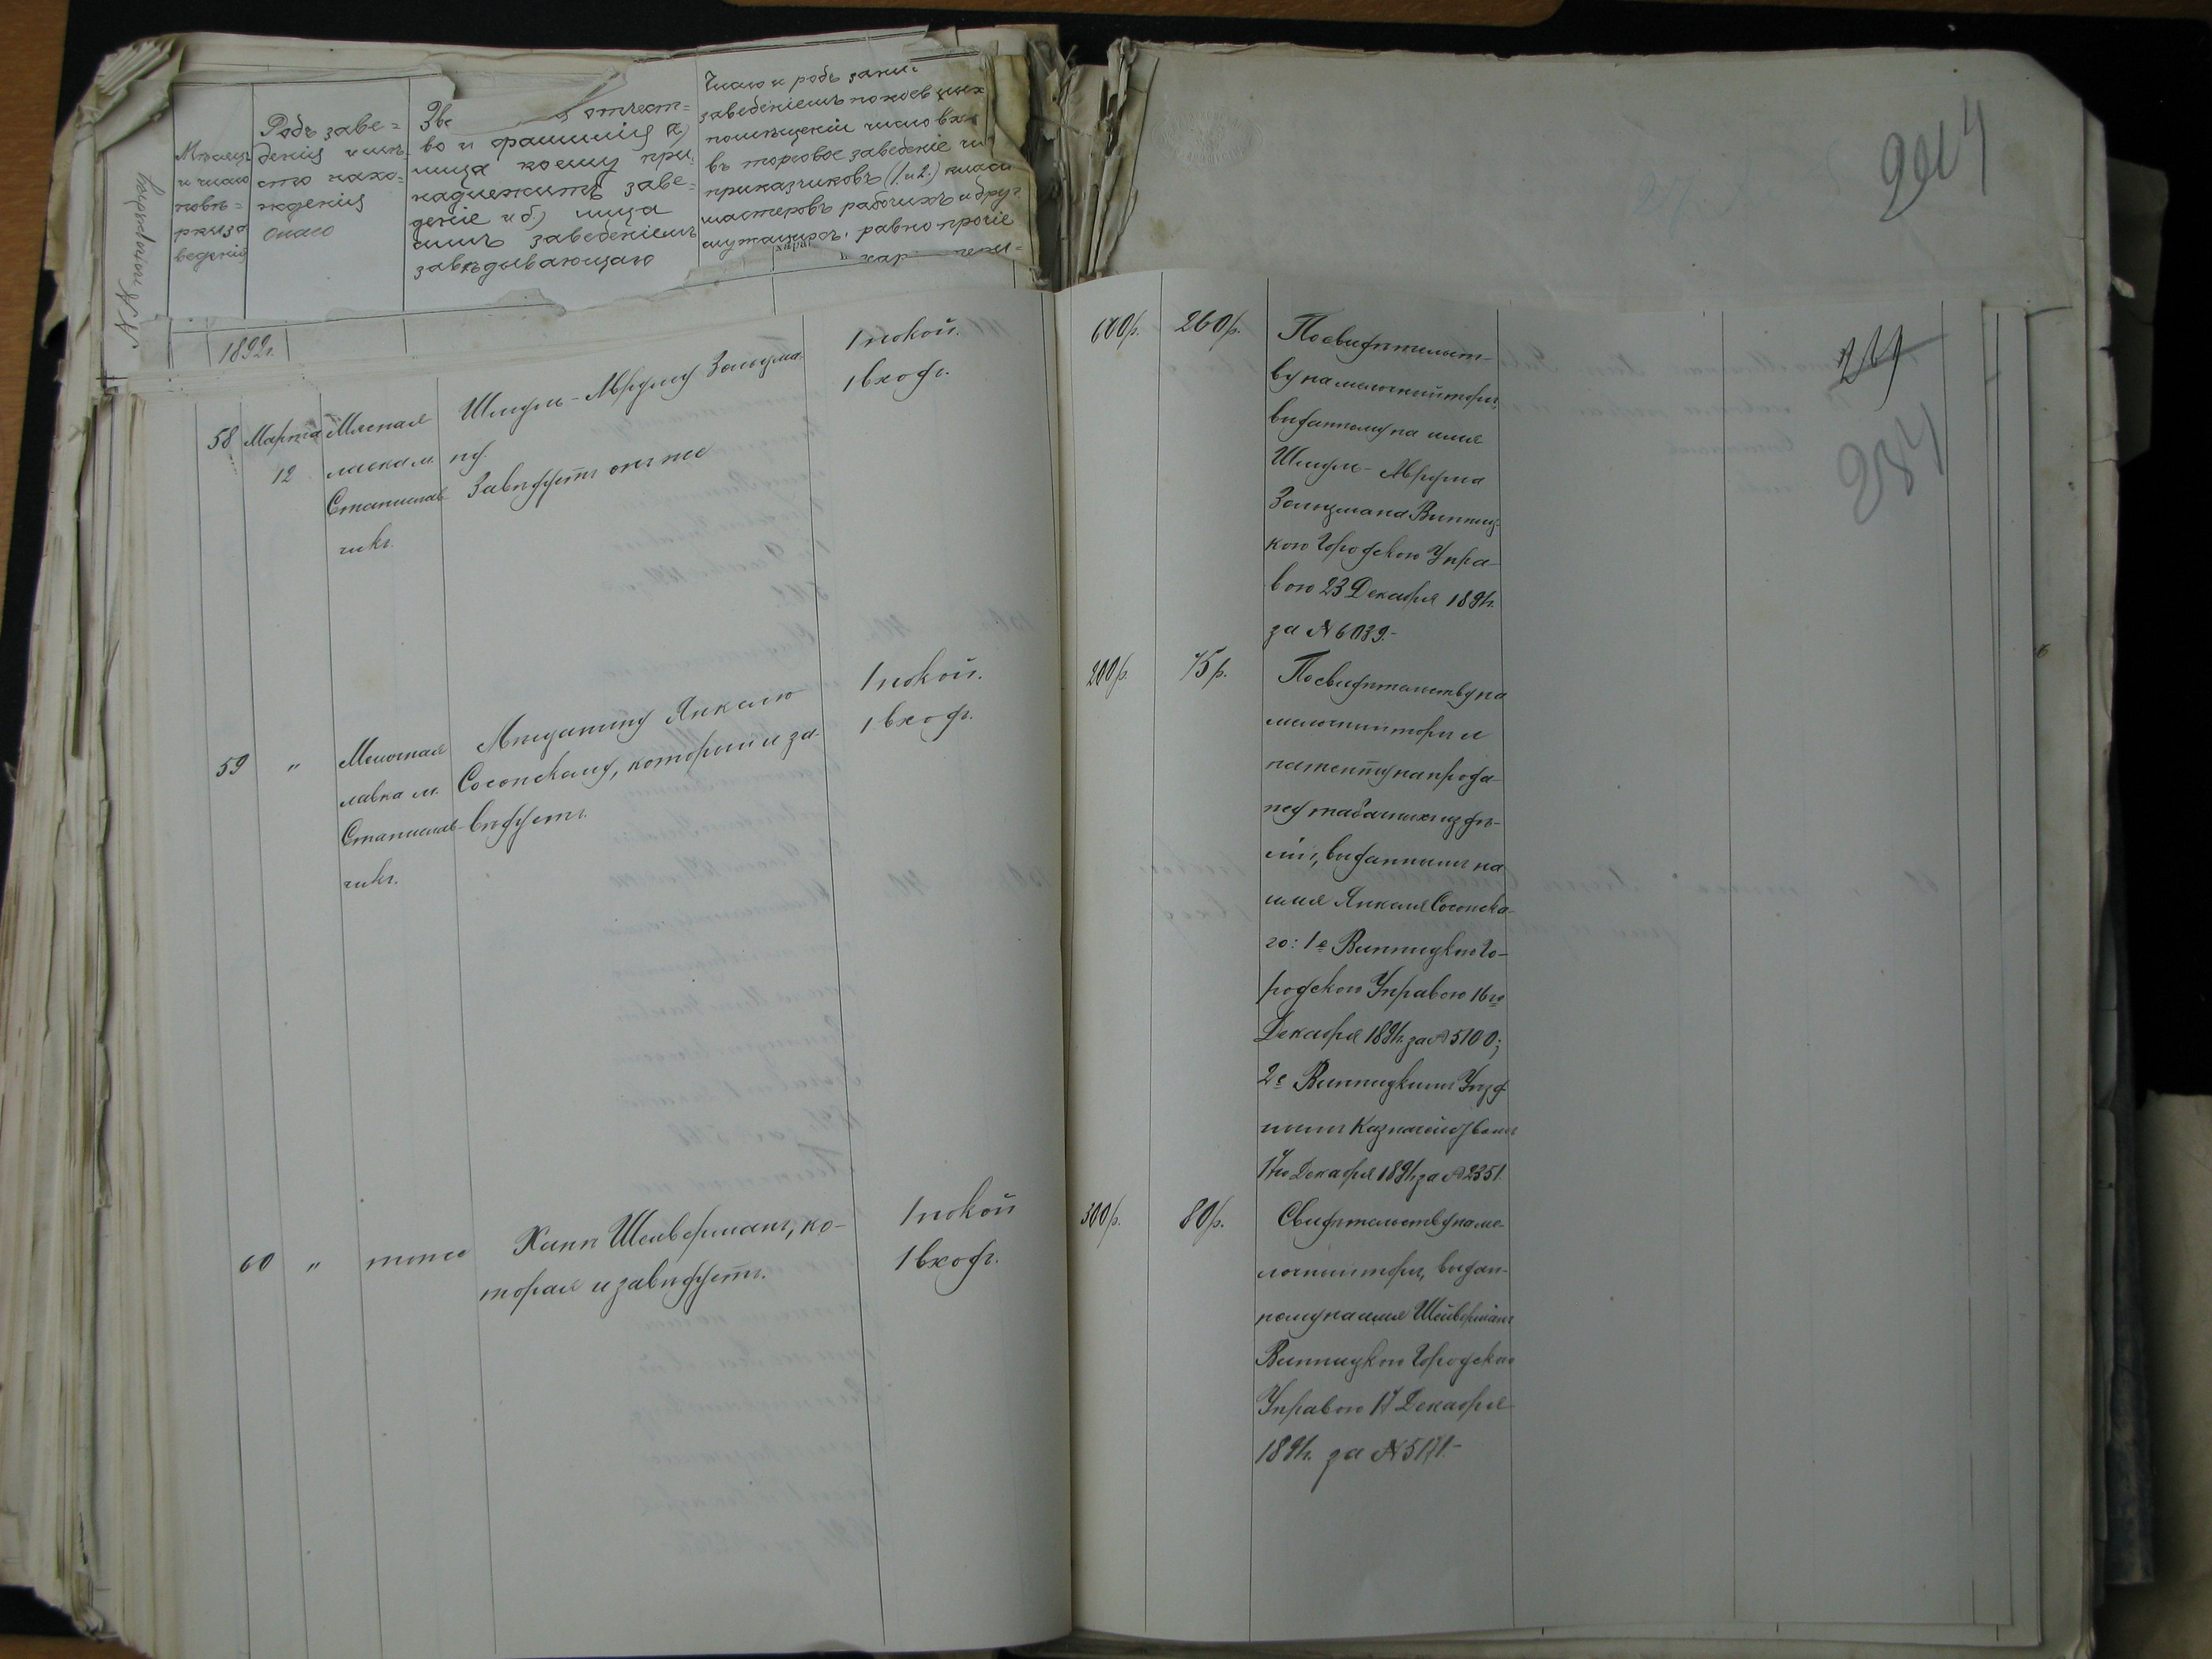 NN по порядку
Мѣсяцъ
и число
повѣ=
рки за
веденій
Родъ заве=
денія и мѣ=
сто нахо=
жденія
онаго
Зве
отчест=
во и фамилія а)
лица коему при
надлежитъ заве=
деніе и б) лица
симъ заведеніемъ
завѣдывающаго
Число и родъ зани
заведеніемъ покоевъ
помѣщеніи число вхо
въ торговое заведеніе чи
приказчиковъ (1 и 2) класс
мастеровъ рабочихъ и друг
служащихъ, равно прочіе
1892г.
58 Марта 12
Мясная
лавка м.
Станислав-
чикъ.
Шмуль-Аврумъ Зальцма-
ну.
Завѣдуетъ онъ же
1 покой.
1 входъ.
600р. 260р.
По свидѣтельст-
ву на мелочный торгъ,
выданному на имя
Шмуль-Аврума
Зальцмана Винниц-
кою Городскою Упра-
вою 23 Декабря 1891г.
за N 6039.-
59 "
Мелочная
лавка м.
Станислав-
чикъ.
Янкелю
Сосонскому, который и за-
вѣдуетъ.
1 покой.
1 входъ.
200р. 75р.
По свидѣтельству на
мелочный торгъ и
патенту на прода-
жу табачныхъ издѣ-
лій, выданнымъ на
имя Янкеля Сосонска-
го: 1е Винницкою Го-
родскою Управою 16го
Декабря 1891г. за N 5100;
2е Винницкимъ Уѣзд
нымъ Казначействомъ
17го Декабря 1891г. за N 2351.
60 " тоже
Хана Шейверманъ, ко-
торая и завѣдуетъ.
1 покой
1 входъ.
300р. 80р.
Свидѣтельству на ме-
лочный торгъ, выдан-
ному на имя Шейверманъ
Винницкою Городскою
Управою 17 Декабря
1891г. за N 5171.-
269
284